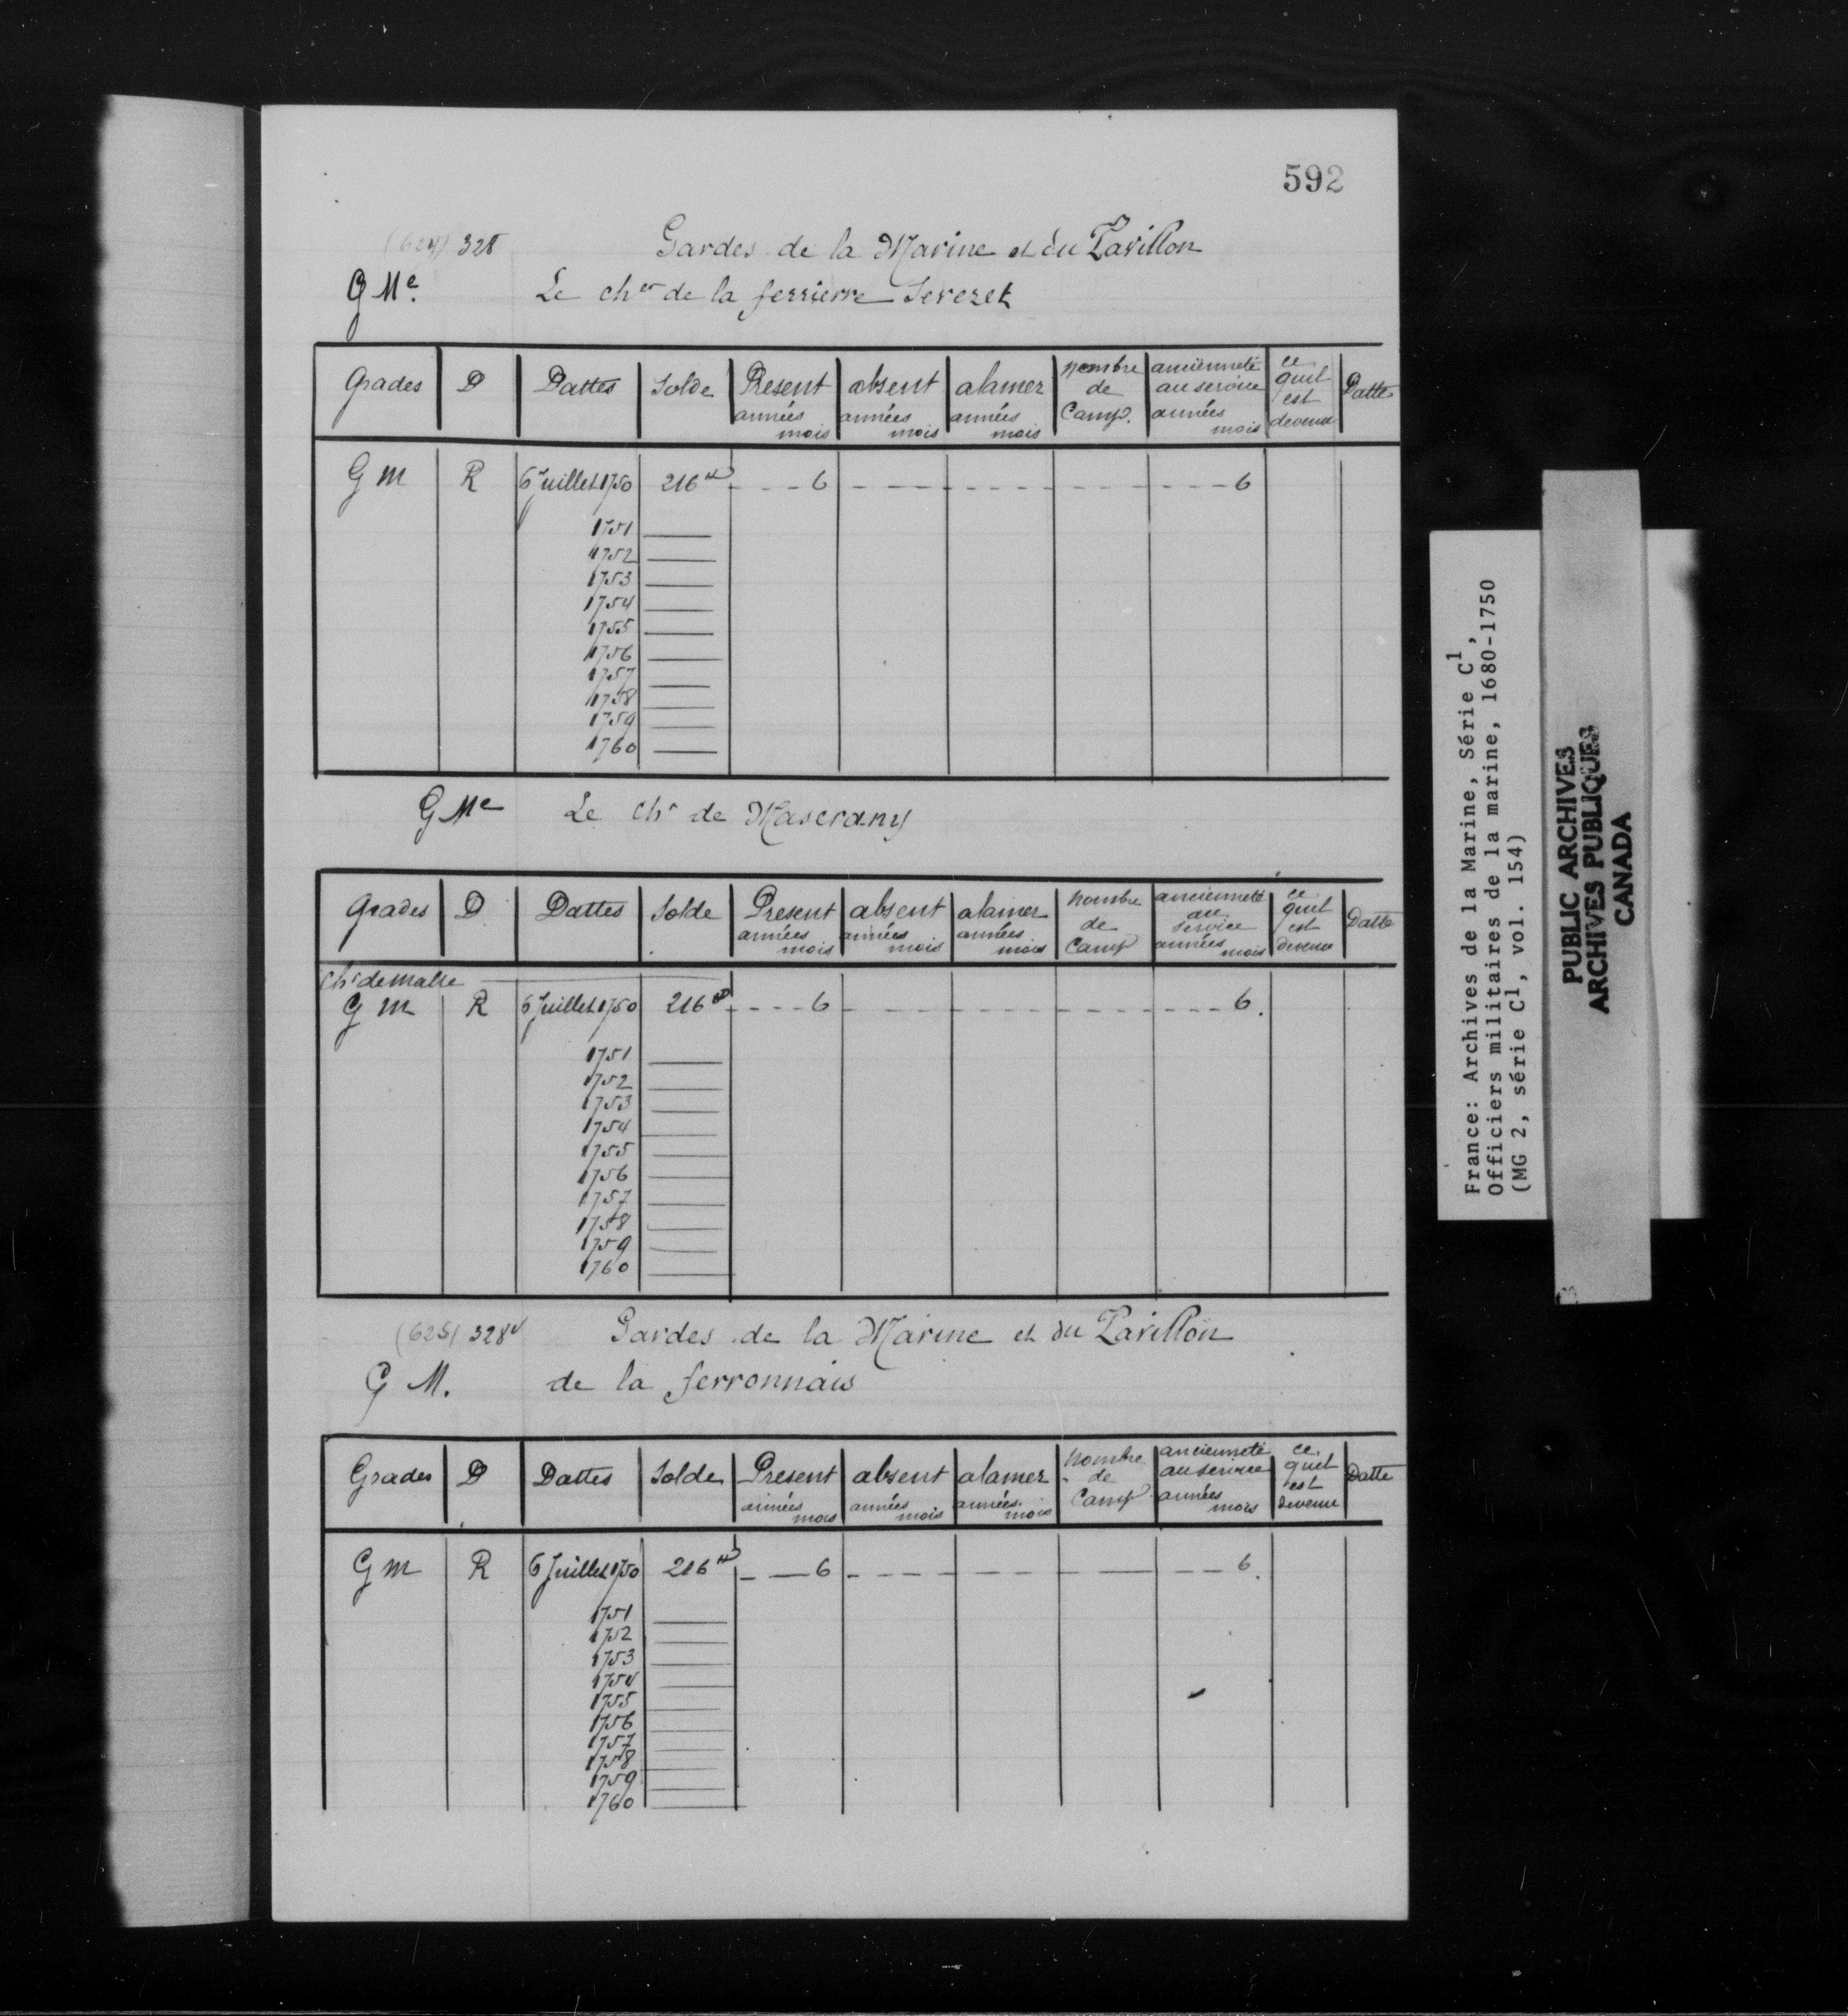 592
(624) 328
Gardes de la Marine et du Pavillon
G Me. Le cher de la ferrierre Sevezet
Grades D Dattes Solde Present années mois absent années mois alamer années mois nombre de Camp. ancienneté au service années mois ce quil est devenu Datte
G M R 6 Juillet 1750 216# - - - 6 - - - - - - 6
1751
1752
1753
1754
1755
1756
1757
1758
1759
1760
G Me Le chr de Mascrany
Grades D Dattes Solde Present années mois absent années mois alamer années mois nombre de Camp ancienneté au service années mois ce quil est devenu Datte
Chr de malte
G M R 6 Juillet 1750 216# - - - 6 - - - - - - 6.
1751
1752
1753
1754
1755
1756
1757
1758
1759
1760
(625) 328v
Gardes de la Marine et du Pavillon
G M. de la ferronnais
Grades D Dattes Solde Present années mois absent années mois alamer années mois Nombre de Camp ancienneté au service années mois ce quil est devenu Datte
G M R 6 Juillet 1750 216# - - 6 - - - - - - 6.
1751
1752
1753
1754
1755
1756
1757
1758
1759
1760
France: Archives de la Marine, Série C1,
Officiers militaires de la marine, 1680-1750
(MG 2, série C1, vol. 154)
PUBLIC ARCHIVES
ARCHIVES PUBLIQUES
CANADA